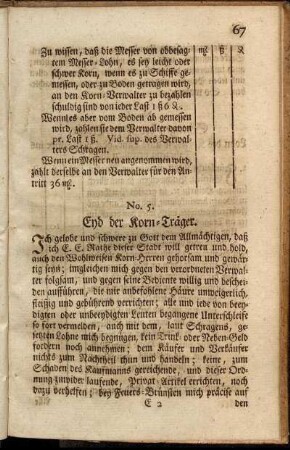 67
Zu wissen, daß die Messer von obbesag- m꠶ ß ₰
tem Messer-Lohn, es sey leicht oder
schwer Korn, wenn es zu Schiffe ge-
messen, oder zu Boden getragen wird,
an den Korn-Verwalter zu bezahlen
schuldig sind von ieder Last 1 ß 6 ₰.
Wenn es aber vom Boden ab gemessen
wird, zahlen sie dem Verwalter davon
pr. Last 1 ß. Vid. sup. des Verwal-
ters Schragen.
Wenn ein Messer neu angenommen wird,
zahlt derselbe an den Verwalter für den An-
tritt 36 m꠶.
No. 5.
Eyd der Korn-Träger.
Ich gelobe und schwere zu Gott dem Allmächtigen, daß
ich E. E. Rathe dieser Stadt will getreu und hold,
auch den Wohlweisen Korn-Herren gehorsam und gewär-
tig seyn; imgleichen mich gegen den verordneten Verwal-
ter folgsam, und gegen seine Bediente willig und beschei-
den aufführen, die mir anbefohlene Häure unweigerlich,
fleißig und gebührend verrichten; alle und iede von beey-
digten oder unbeeydigten Leuten begangene Unterschleife
so fort vermelden, auch mit dem, laut Schragens, ge-
setzten Lohne mich begnügen, kein Trink- oder Neben-Geld
fordern noch annehmen; dem Käufer und Verkäufer
nichts zum Nachtheil thun und handeln; keine, zum
Schaden des Kaufmanns gereichende, und dieser Ord-
nung zuwider laufende, Privat-Artikel errichten, noch
dazu verhelfen; bey Feuers-Brünsten mich präcise auf
E 2 den